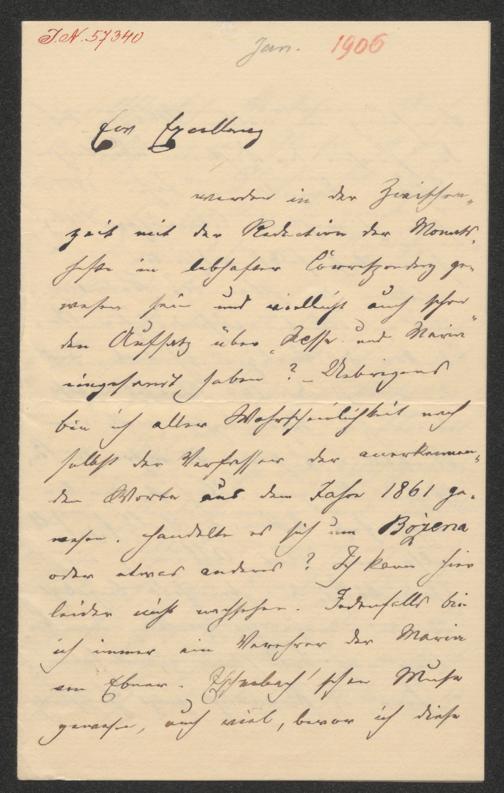 J.N. 57340
Jan. 1906
Euer Exzellenz
werden in der Zwischen-
zeit mit der Redaction der Monats-
hefte in lebhafter Correspondenz ge-
wesen sein und vielleicht auch schon
den Aufsatz über „Jesse und Maria“
eingesandt haben? – Uebrigens
bin ich aller Wahrscheinlichkeit nach
selbst der Verfasser der anerkennen-
den Worte aus dem Jahre 1861 ge-
wesen. Handelte es sich um Božena
oder etwas anderes? Ich kann hier
leider nicht nachsehen. Jedenfalls bin
ich immer ein Verehrer der Marie
von Ebner-Eschenbach'schen Muse
gewesen, auch viel, bevor ich diese